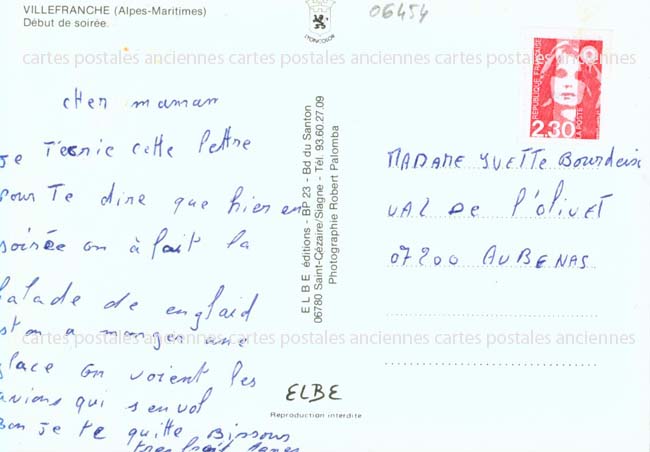 VILLEFRANCHE (Alpes-Maritimes)
Début de soirée.
LYONCOLOR
06454
cartes postales anciennes cartes postales anciennes cartes postales anciennes
cher maman
je T'ecrie cette lettre
pour Te dire que hier en
soirée on à fait la
balade de
et on a manger une
glace on voient les
avions qui s'envol
Bon je te quitte Bissous
tres fait
E L B E éditions - BP 23 - Bd du Santon
06780 Saint-Cézaire/Siagne - Tél. 93.60.27.09
Photographie Robert Palomba
ELBE
Reproduction interdite
RÉPUBLIQUE FRANÇAISE
2,30
LA POSTE
MADAME YVETTE Bourdeise
VAL De l'olivET
07200 AUBENAS
cartes postales anciennes cartes postales anciennes cartes postales anciennes